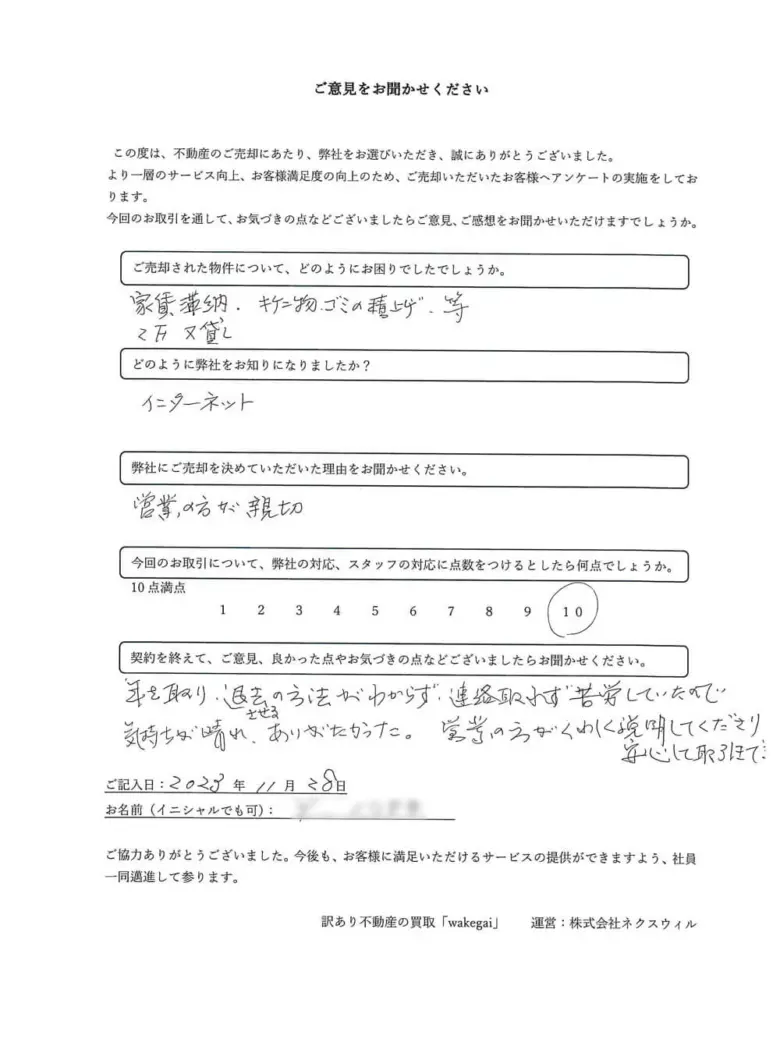 ご意見をお聞かせください
この度は、不動産のご売却にあたり、弊社をお選びいただき、誠にありがとうございました。
より一層のサービス向上、お客様満足度の向上のため、ご売却いただいたお客様へアンケートの実施をしてお
ります。
今回のお取引を通して、お気づきの点などございましたらご意見、ご感想をお聞かせいただけますでしょうか。
ご売却された物件について、どのようにお困りでしたでしょうか。
家賃滞納・ 物・ゴミの積上げ・等
又貸し
どのように弊社をお知りになりましたか？
インターネット
弊社にご売却を決めていただいた理由をお聞かせください。
営業の方が親切
今回のお取引について、弊社の対応、スタッフの対応に点数をつけるとしたら何点でしょうか。
10点満点
1 2 3 4 5 6 7 8 9 10
契約を終えて、ご意見、良かった点やお気づきの点などございましたらお聞かせください。
年を取り、退去させる方法がわからず、連絡取れず苦労していたので
気持ちが晴れ、ありがたかった。 営業の方がくわしく説明してくださり
安心して取引
ご記入日：2023 年 11 月 28日
お名前（イニシャルでも可）：
ご協力ありがとうございました。今後も、お客様に満足いただけるサービスの提供ができますよう、社員
一同邁進して参ります。
訳あり不動産の買取「wakegai」 運営：株式会社ネクスウィル